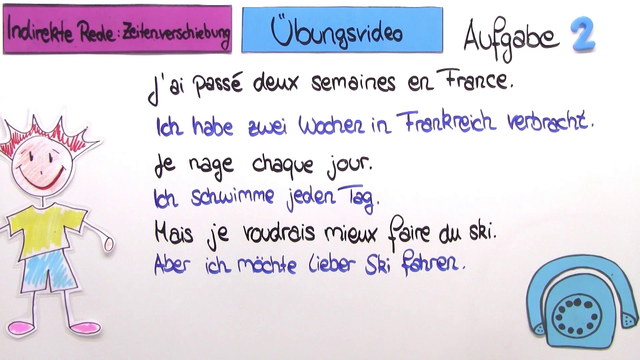 Indirekte Rede: Zeitenverschiebung
Übungsvideo
Aufgabe 2
J'ai passé deux semaines en France.
Ich habe zwei Wochen in Frankreich verbracht.
Je nage chaque jour.
Ich schwimme jeden Tag.
Mais je voudrais mieux faire du ski.
Aber ich möchte lieber Ski fahren.